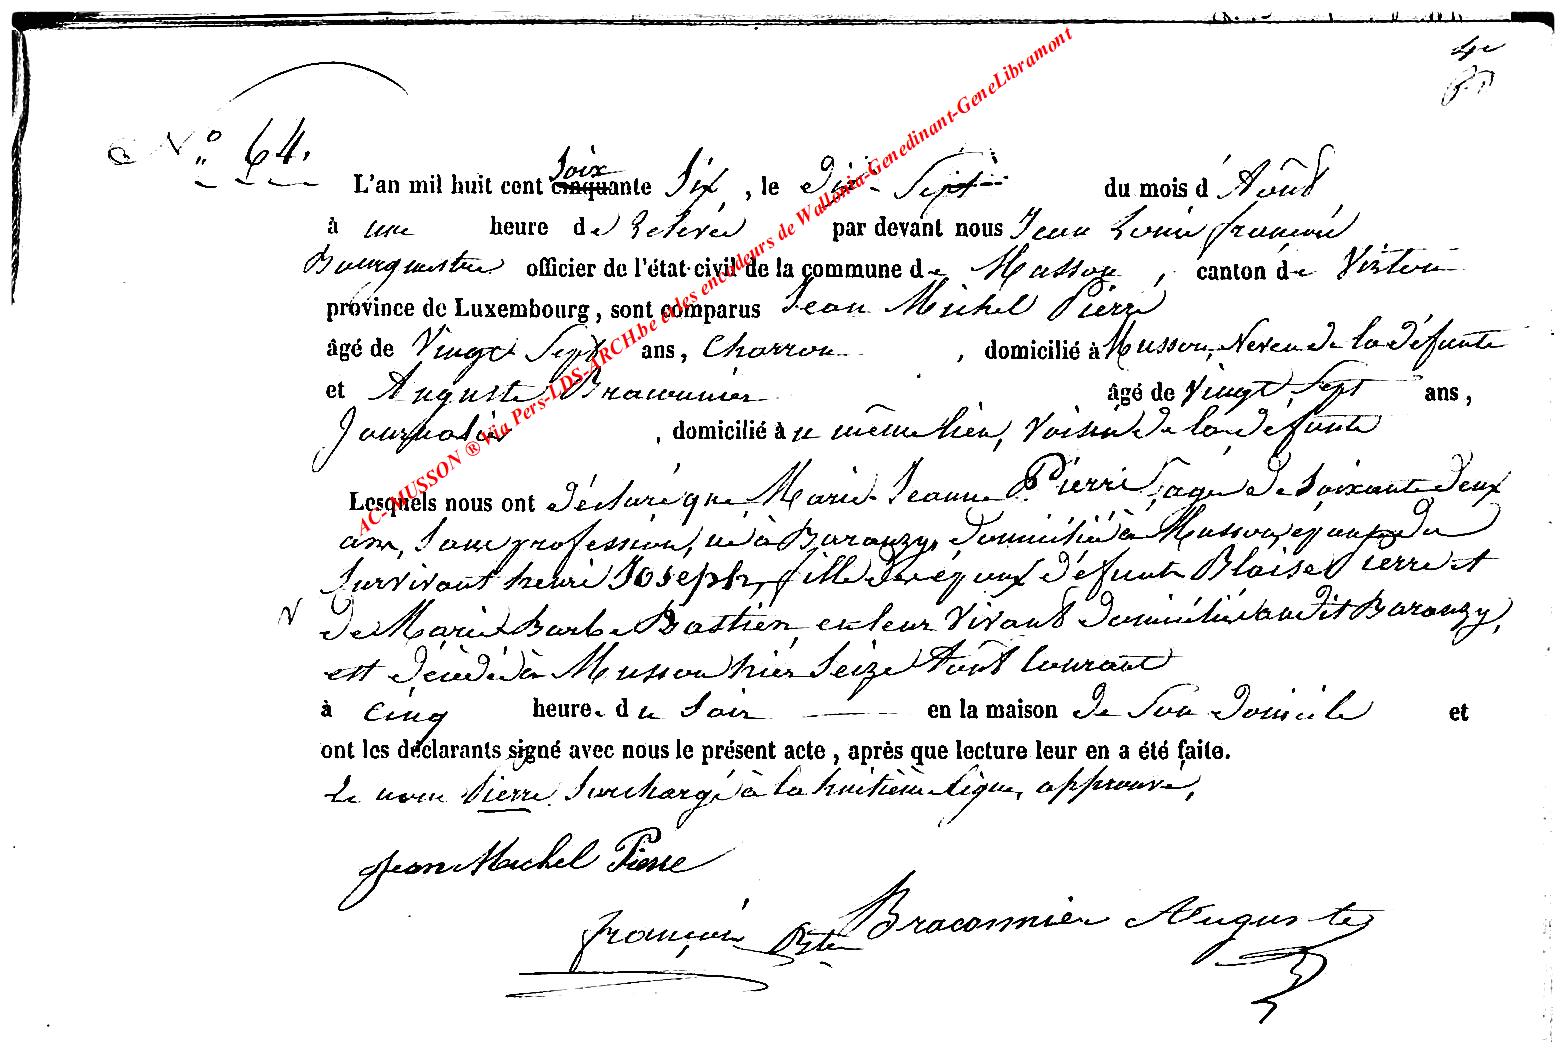 N° 64.
L'an mil huit cent Soix cinquante Six, le Dix-Sept du mois d'Août
à une heure de Relevée par devant nous Jean Louis françois
Bourgmestre officier de l'état-civil de la commune de Musson, canton de Virton
province de Luxembourg, sont comparus Jean Michel Pierre
âgé de Vingt Sept ans, Charron, domicilié à Musson, Neveu de la défunte
et Auguste Braconnier âgé de Vingt Sept ans,
Journalier, domicilié au même lieu, Voisin de la défunte
Lesquels nous ont déclaré que Marie-Jeanne Pierre, agée de Soixante deux
ans, Sans profession, née à Baranzy, domiciliée à Musson, épouse du
Survivant henri Joseph, fille des époux défunts Blaise Pierre et
de Marie Barbe Bastien, en leur Vivant domiciliés au dit Baranzy,
est décédée à Musson hier Seize Août Courant
à Cinq heures du Soir en la maison de Son domicile et
ont les déclarants signé avec nous le présent acte, après que lecture leur en a été faite.
Le nom Pierre Surchargé à la huitième ligne, approuvé,
Jean Michel Pierre
françois Bstre Braconnier Auguste
AC-MUSSON ® Via Pers-LDS-ARCH.be et les encodeurs de Wallonia-Genedinant-GeneLibramont